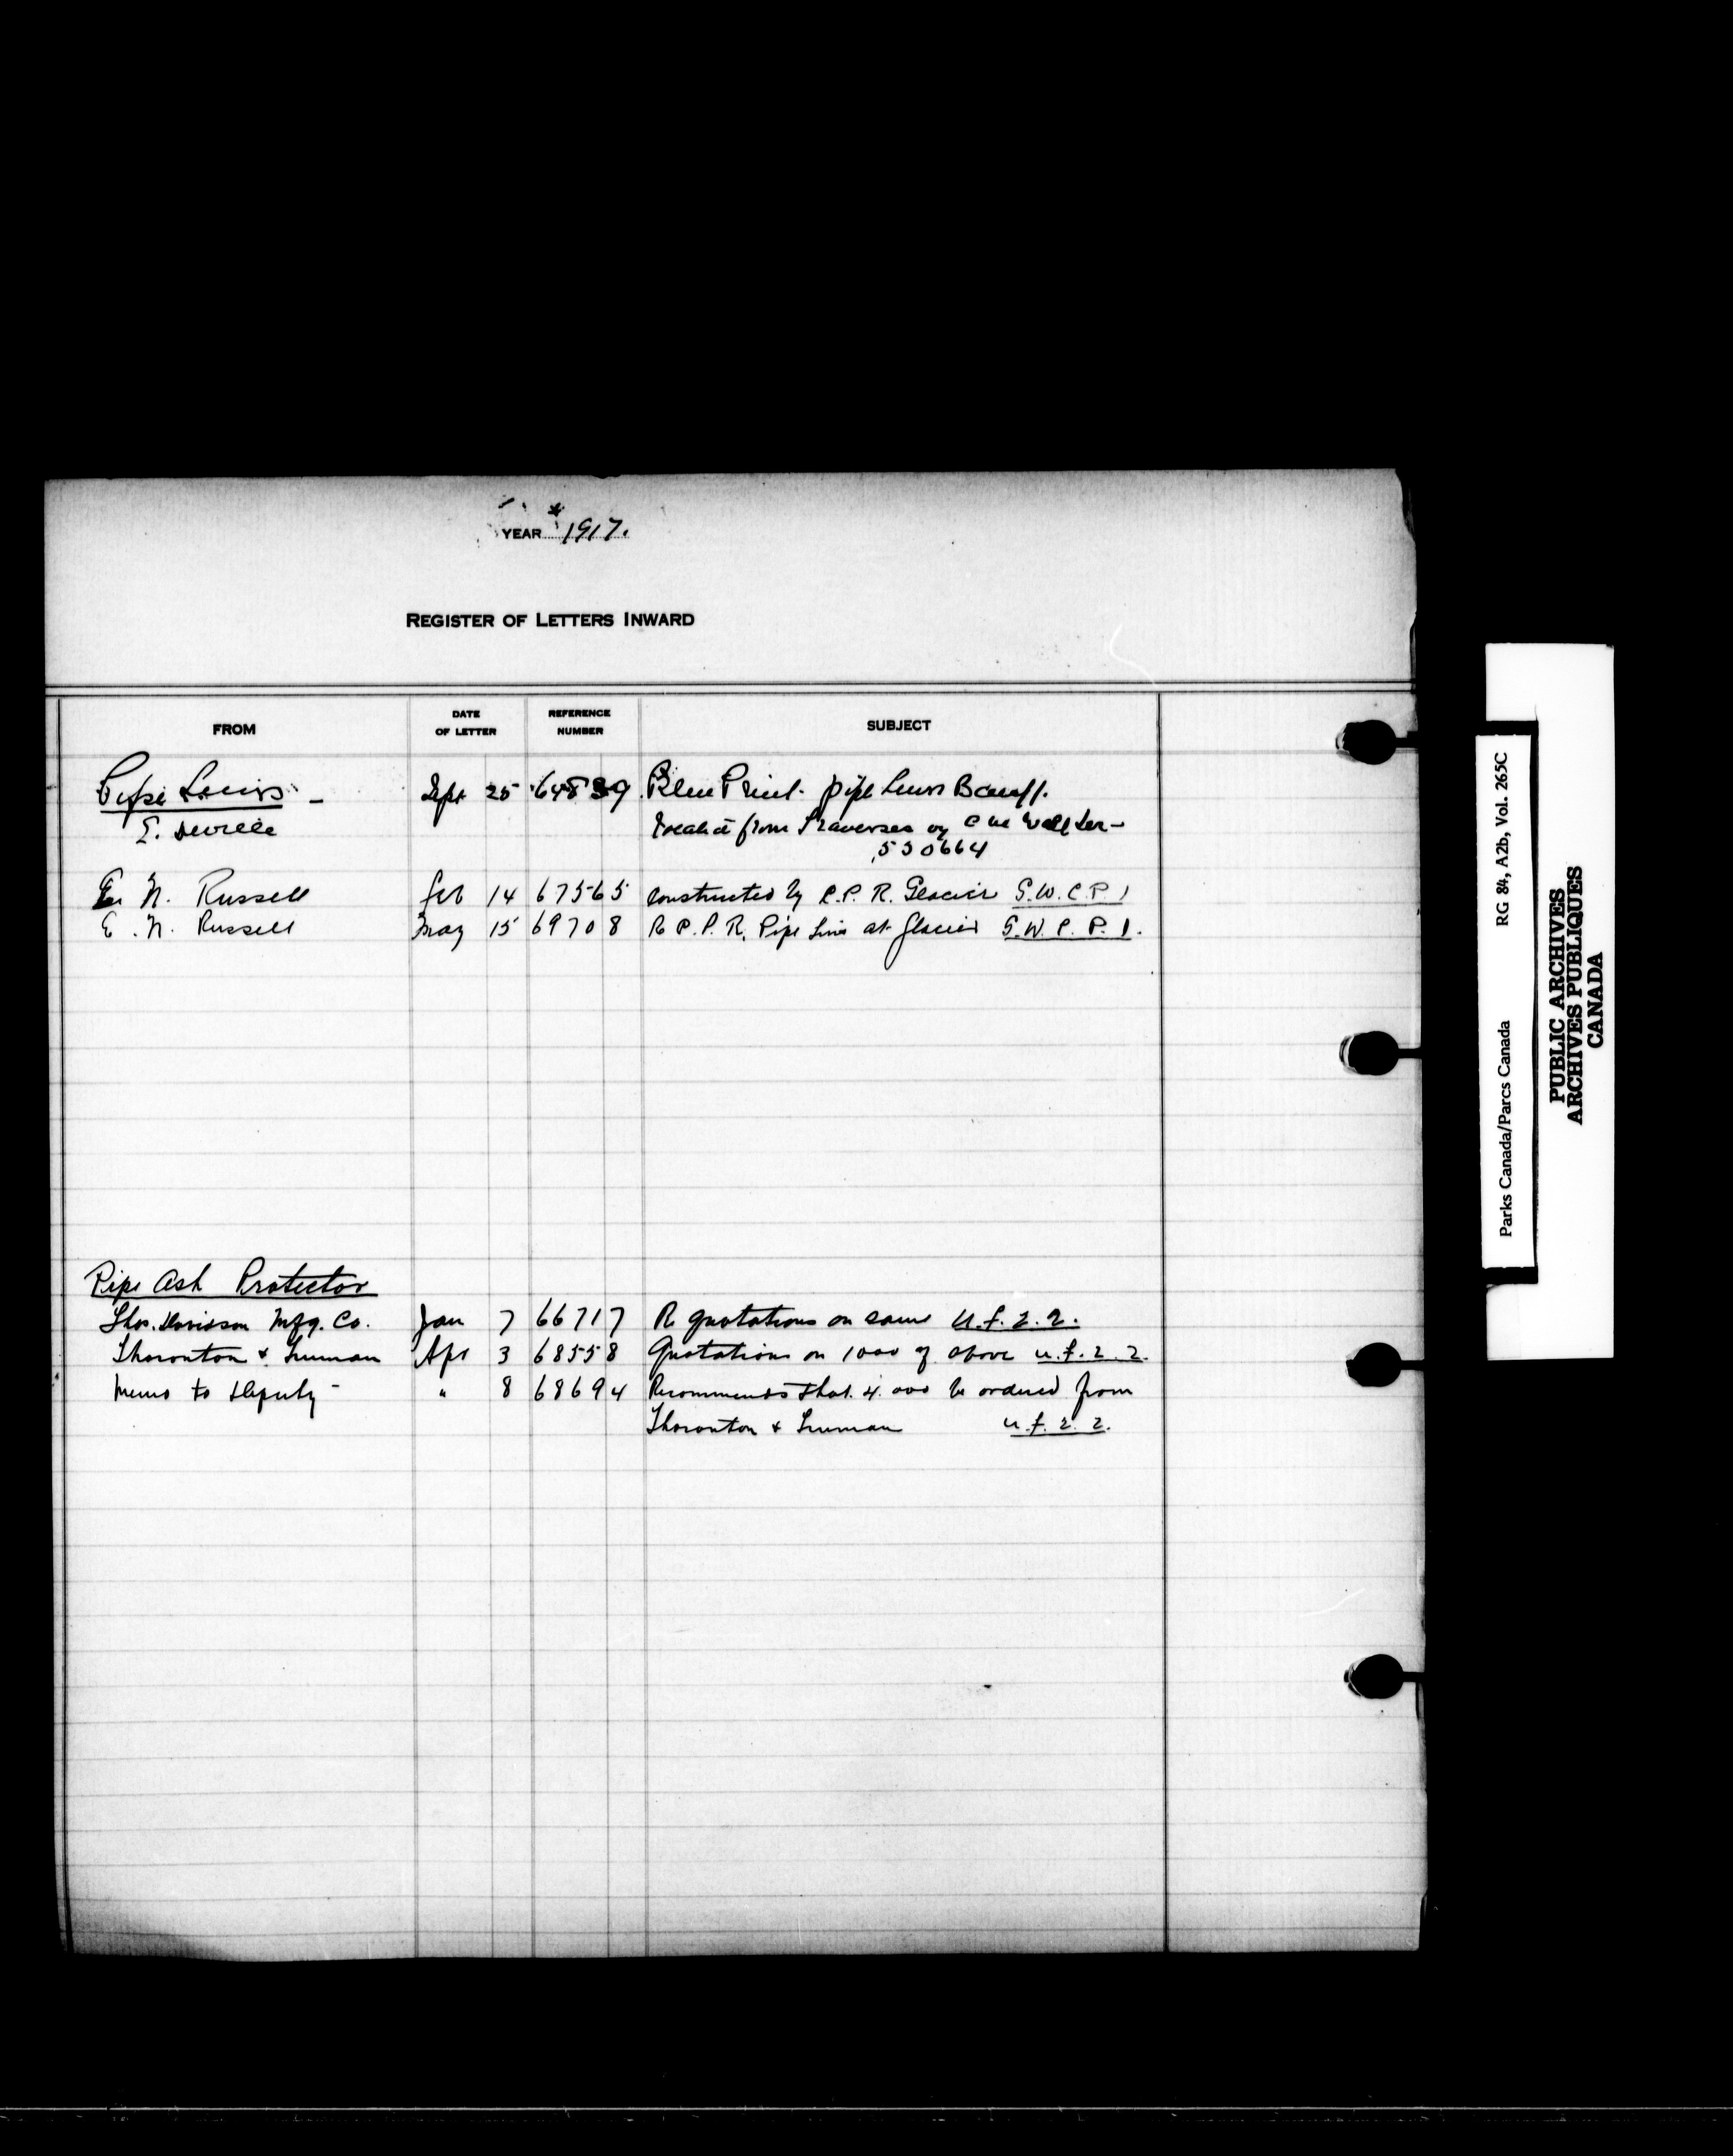 YEAR 1917.
REGISTER OF LETTERS INWARD
FROM DATE OF LETTER REFERENCE NUMBER SUBJECT
Pipe Lines - Sept 25 64839 Blue Print pipe Lines Banff.
E. Deville Located from Traverses by C M
530664
E. N. Russell Feb 14 67565 constructed by C.P.R. Glacier G.W.C.P. 1
E. N. Russell May 15 69708 R C.P.R. Pipe Line at Glacier G.W.C.P. 1.
Pipe Ash Protector
Thos. Davidson Mfg. Co. Jan 7 66717 R quotations on same U.f.2.2.
Thoronton & Truman Apr 3 68558 Quotations on 1000 of above u.f.2.2.
Memo to Deputy - " 8 68694 Recommends that 4.000 be ordered from
Thoronton & Truman u.f.2.2.
RG 84, A2b, Vol. 265C
Parks Canada/Parcs Canada
PUBLIC ARCHIVES
ARCHIVES PUBLIQUES
CANADA